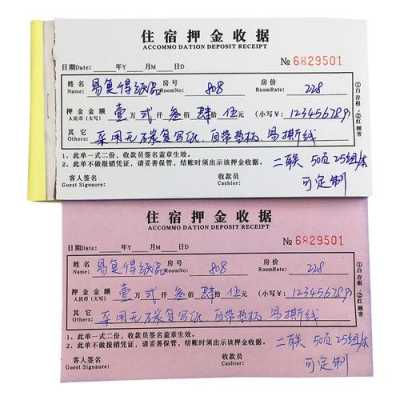 住宿押金收据
ACCOMMO DATION DEPOSIT RECEIPT
日期Date: 年Y 月M 日D № 6829501
姓名 易复得纸品 房号 808 房价 228
Name: RoomNo: RoomRate:
押金金额 壹万贰仟叁佰肆拾伍元 (小写¥): 123456789
人民币(大写)
其它 采用无碳复写纸,自带垫板 易撕线
Others
1、此单一式二份,收款员签名盖章生效。
2、此单不做报销凭证,请妥善保管,结账时须出示该押金收据。
二联 50页 25组/本
客人签名 收款员 可定制
Guest Signaure: Cashier:
①白存根 ②红顾客
住宿押金收据
ACCOMMO DATION DEPOSIT RECEIPT
日期Date: 年Y 月M 日D № 6829501
姓名 易复得纸品 房号 808 房价 228
Name: RoomNo: RoomRate:
押金金额 壹万贰仟叁佰肆拾伍元 (小写¥): 123456789
人民币(大写)
其它 采用无碳复写纸,自带垫板 易撕线
Others
1、此单一式二份,收款员签名盖章生效。
2、此单不做报销凭证,请妥善保管,结账时须出示该押金收据。
二联 50页 25组/本
客人签名 收款员 可定制
Guest Signaure: Cashier:
①白存根 ②红顾客